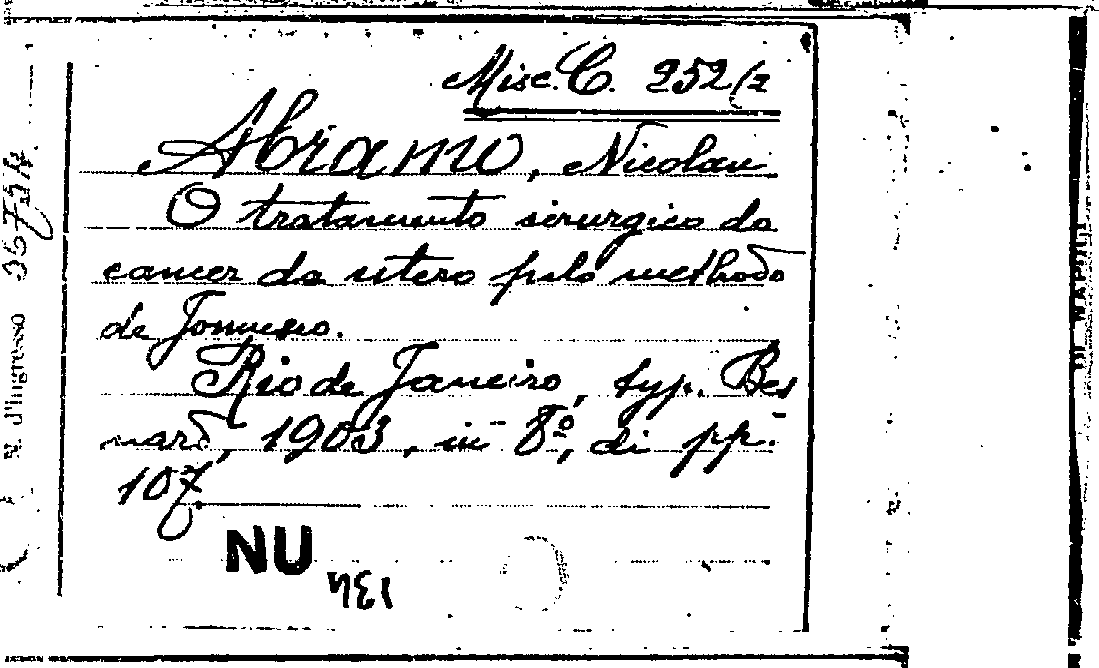 Misc. C. 252/2
Abramo, Nicolau
O tratamento sirurgico do
cancer do utero pelo methodo
de Jonnesco.
Rio de Janeiro, typ. Bes
nard, 1903, in 8º, di pp.
107.
NU
134
N. d'Ingresso
DI NAPOLI